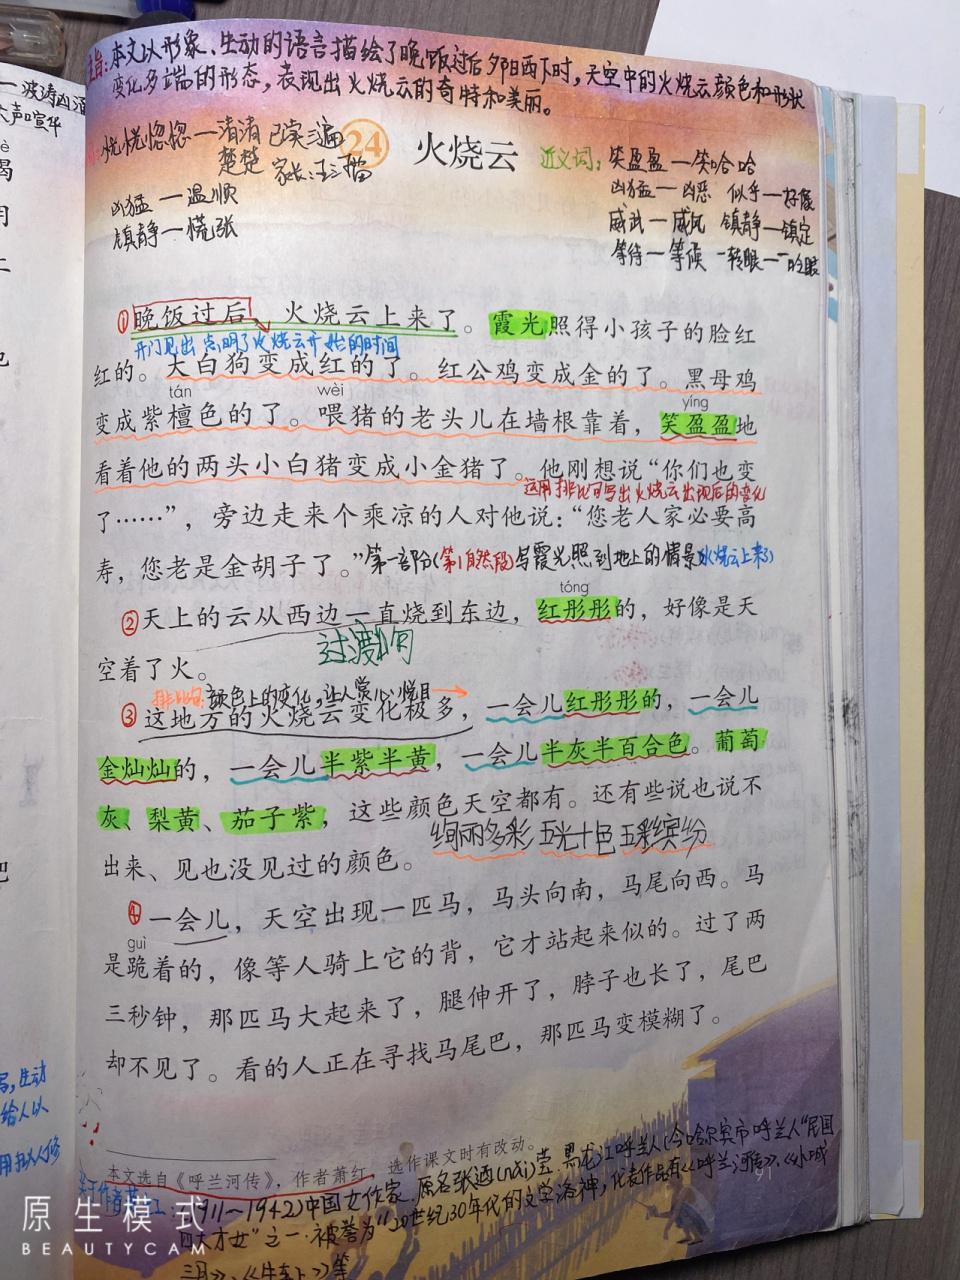 主旨：本文以形象、生动的语言描绘了晚饭过后夕阳西下时，天空中的火烧云颜色和形状
变化多端的形态，表现出火烧云的奇特和美丽。
一波涛汹涌
大声喧华
恍恍惚惚一清清楚楚
已读三遍
家长：王
24 火烧云
近义词：笑盈盈一笑哈哈
凶猛一凶恶 似乎一好像
威武一威风 镇静一镇定
等待一等候 一转眼一一眨眼
凶猛一温顺
镇静一慌张
①晚饭过后，火烧云上来了。霞光照得小孩子的脸红
开门见山 点明了火烧云开始的时间
红的。大白狗变成红的了。红公鸡变成金的了。黑母鸡
tán wèi yíng
变成紫檀色的了。喂猪的老头儿在墙根靠着，笑盈盈地
看着他的两头小白猪变成小金猪了。他刚想说“你们也变
运用排比句写出火烧云出现后的变化
了……”，旁边走来个乘凉的人对他说：“您老人家必要高
寿，您老是金胡子了。”
第一部分（第1自然段）写霞光照到地上的情景（火烧云上来了）
tóng
②天上的云从西边一直烧到东边，红彤彤的，好像是天
过渡句
空着了火。
排比句：颜色上的变化，让人赏心悦目
③这地方的火烧云变化极多，一会儿红彤彤的，一会儿
金灿灿的，一会儿半紫半黄，一会儿半灰半百合色。葡萄
灰、梨黄、茄子紫，这些颜色天空都有。还有些说也说不
出来、见也没见过的颜色。
绚丽多彩 五光十色 五彩缤纷
④一会儿，天空出现一匹马，马头向南，马尾向西。马
guì
是跪着的，像等人骑上它的背，它才站起来似的。过了两
三秒钟，那匹马大起来了，腿伸开了，脖子也长了，尾巴
却不见了。看的人正在寻找马尾巴，那匹马变模糊了。
写，生动
给人以
本文选自《呼兰河传》，作者萧红，选作课文时有改动。
91
关于作者：萧红（1911～1942）中国女作家.原名张迺莹.黑龙江呼兰人（今哈尔滨市呼兰人“民国
四大才女”之一.被誉为“20世纪30年代的文学洛神，代表作品有《呼兰河传》、《小城
三月》、《牛车上》等
原生模式
BEAUTYCAM